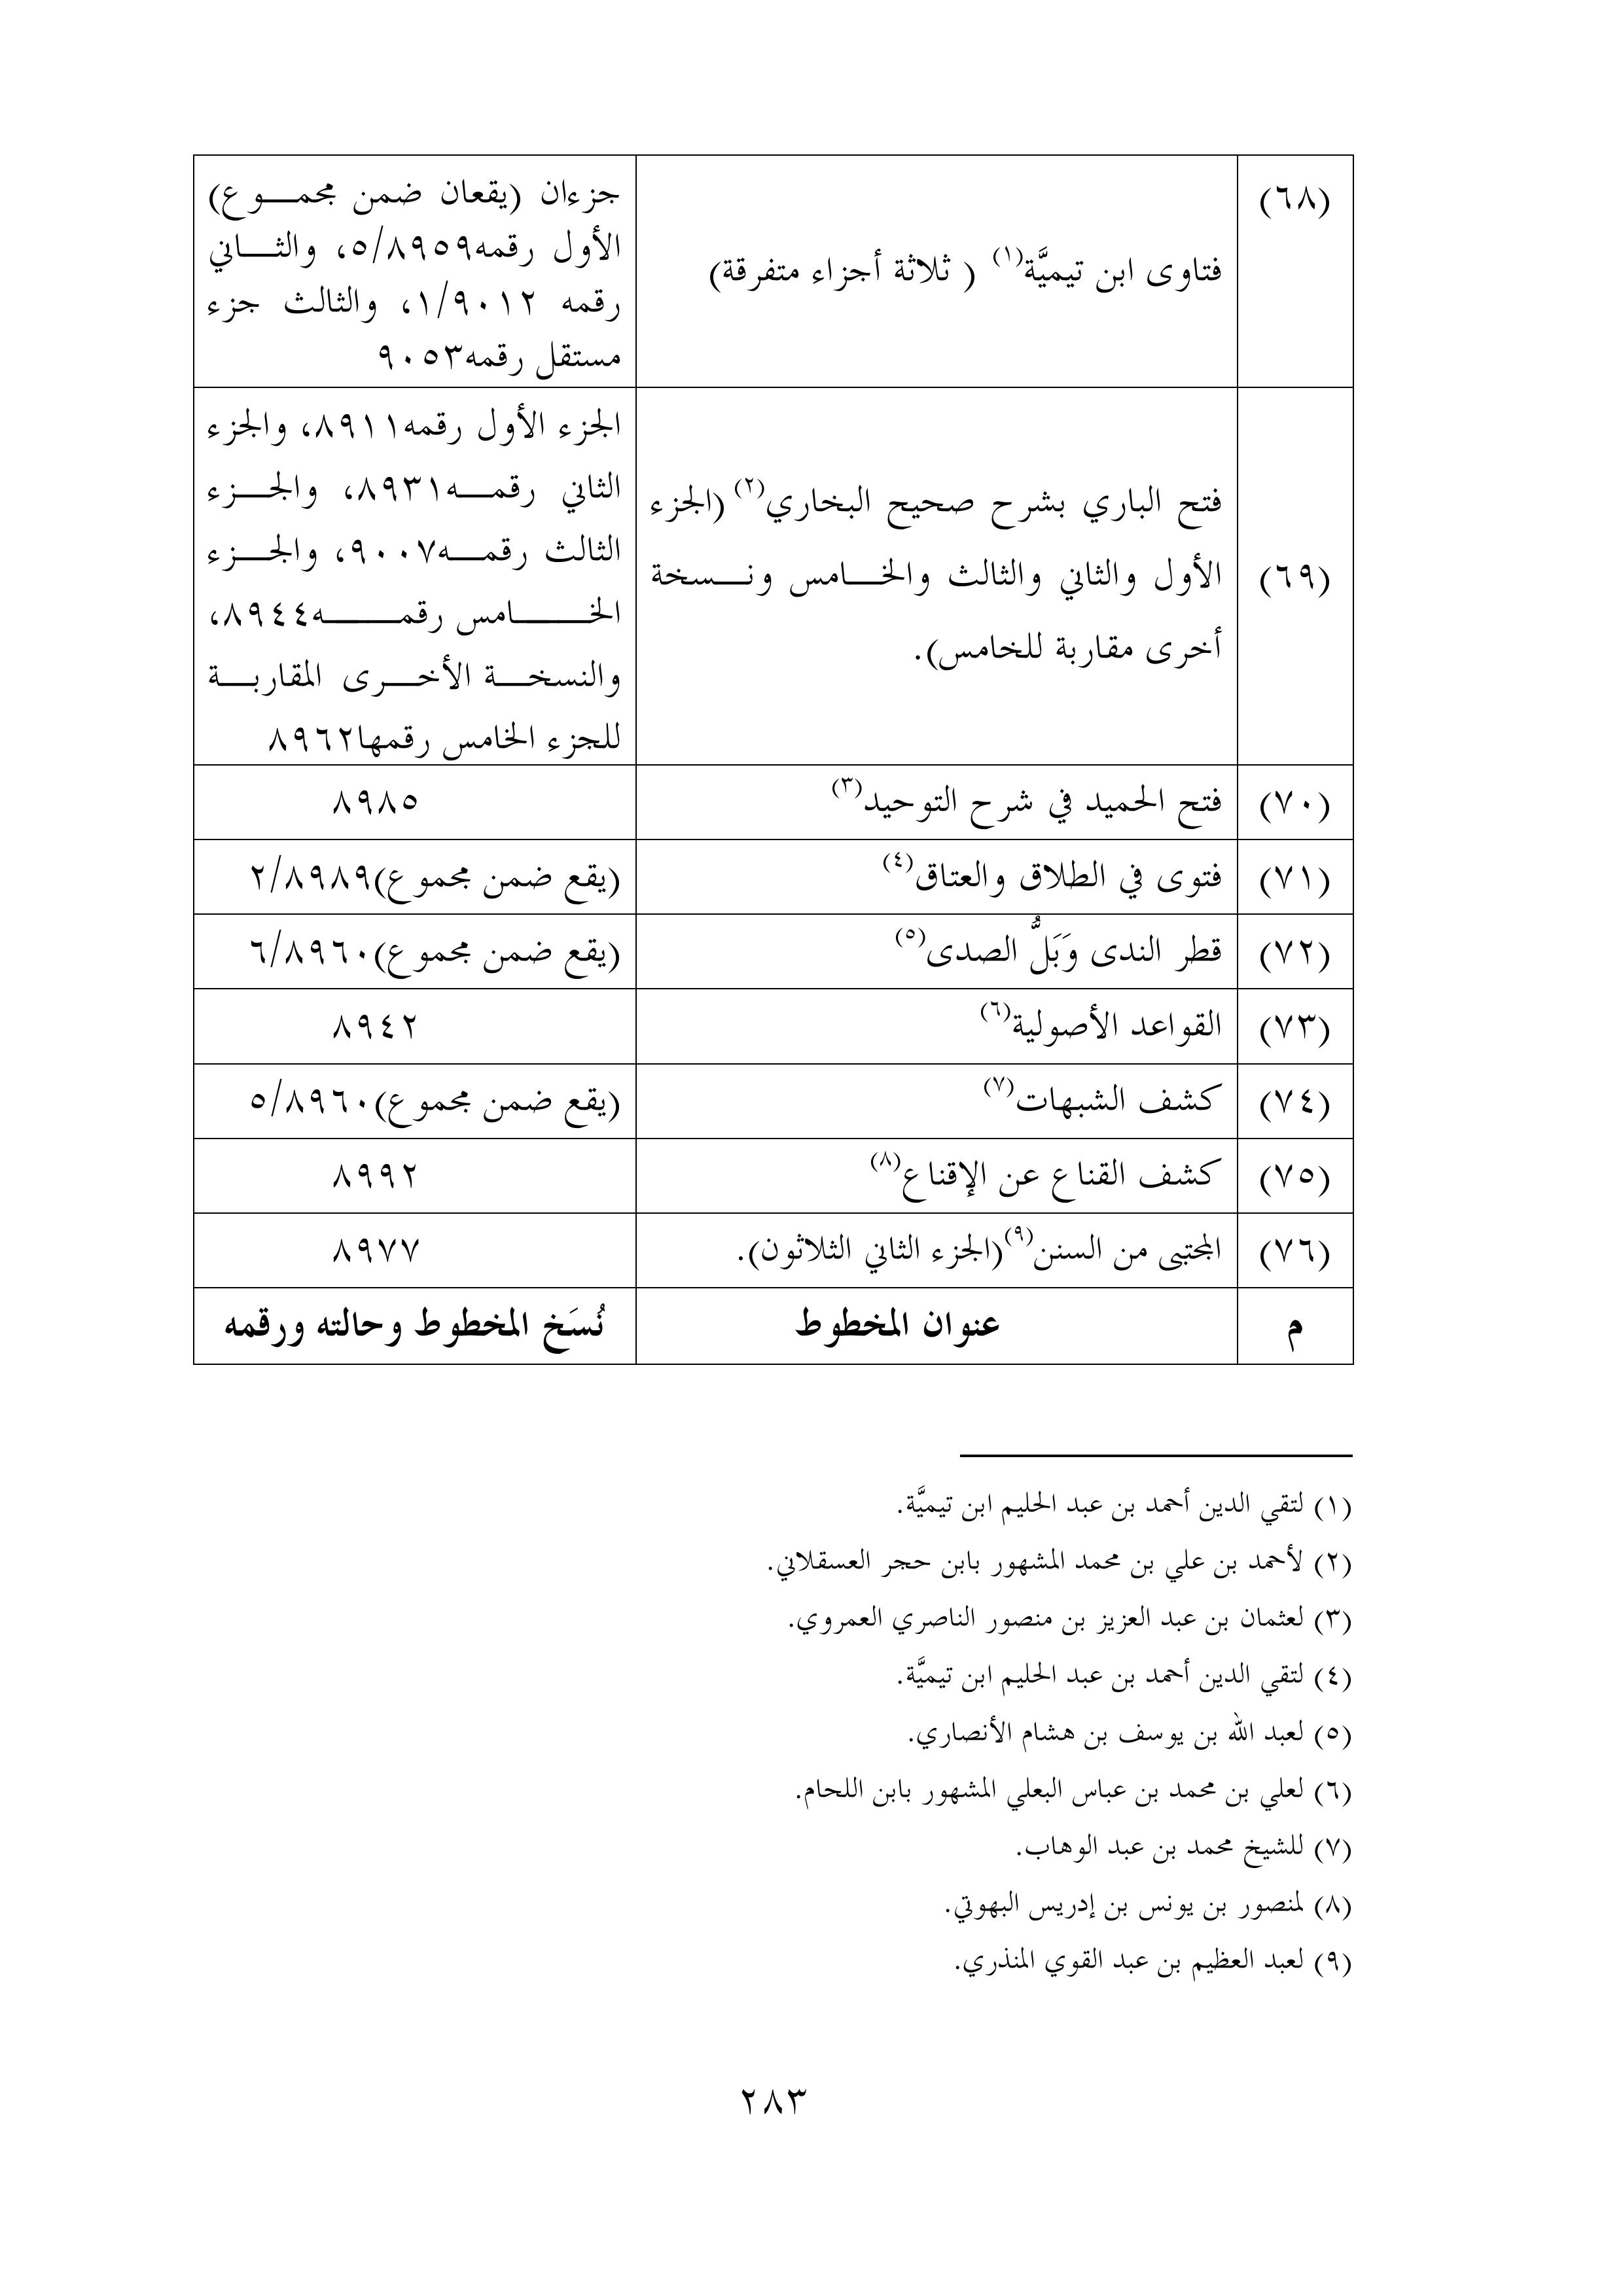 (٦٨)
فتاوى ابن تيميَّة(١) ( ثلاثة أجزاء متفرقة)
جزءان (يقعان ضمن مجموع)
الأول رقمه٥/٨٩٥٩، والثاني
رقمه ١/٩٠١٢، والثالث جزء
مستقل رقمه٩٠٥٣
(٦٩)
فتح الباري بشرح صحيح البخاري(٢) (الجزء
الأول والثاني والثالث والخامس ونسخة
أخرى مقاربة للخامس).
الجزء الأول رقمه٨٩١١، والجزء
الثاني رقمه٨٩٣١، والجزء
الثالث رقمه٩٠٠٧، والجزء
الخامس رقمه٨٩٤٤،
والنسخة الأخرى المقاربة
للجزء الخامس رقمها٨٩٦٢
(٧٠) فتح الحميد في شرح التوحيد(٣) ٨٩٨٥
(٧١) فتوى في الطلاق والعتاق(٤) (يقع ضمن مجموع)٢/٨٩٨٩
(٧٢) قطر الندى وَبَلُّ الصدى(٥) (يقع ضمن مجموع)٦/٨٩٦٠
(٧٣) القواعد الأصولية(٦) ٨٩٤٢
(٧٤) كشف الشبهات(٧) (يقع ضمن مجموع)٥/٨٩٦٠
(٧٥) كشف القناع عن الإقناع(٨) ٨٩٩٢
(٧٦) المجتبى من السنن(٩)(الجزء الثاني الثلاثون). ٨٩٧٧
م عنوان المخطوط نُسَخ المخطوط وحالته ورقمه
(١) لتقي الدين أحمد بن عبد الحليم ابن تيميَّة.
(٢) لأحمد بن علي بن محمد المشهور بابن حجر العسقلاني.
(٣) لعثمان بن عبد العزيز بن منصور الناصري العمروي.
(٤) لتقي الدين أحمد بن عبد الحليم ابن تيميَّة.
(٥) لعبد الله بن يوسف بن هشام الأنصاري.
(٦) لعلي بن محمد بن عباس البعلي المشهور بابن اللحام.
(٧) للشيخ محمد بن عبد الوهاب.
(٨) لمنصور بن يونس بن إدريس البهوتي.
(٩) لعبد العظيم بن عبد القوي المنذري.
٢٨٣